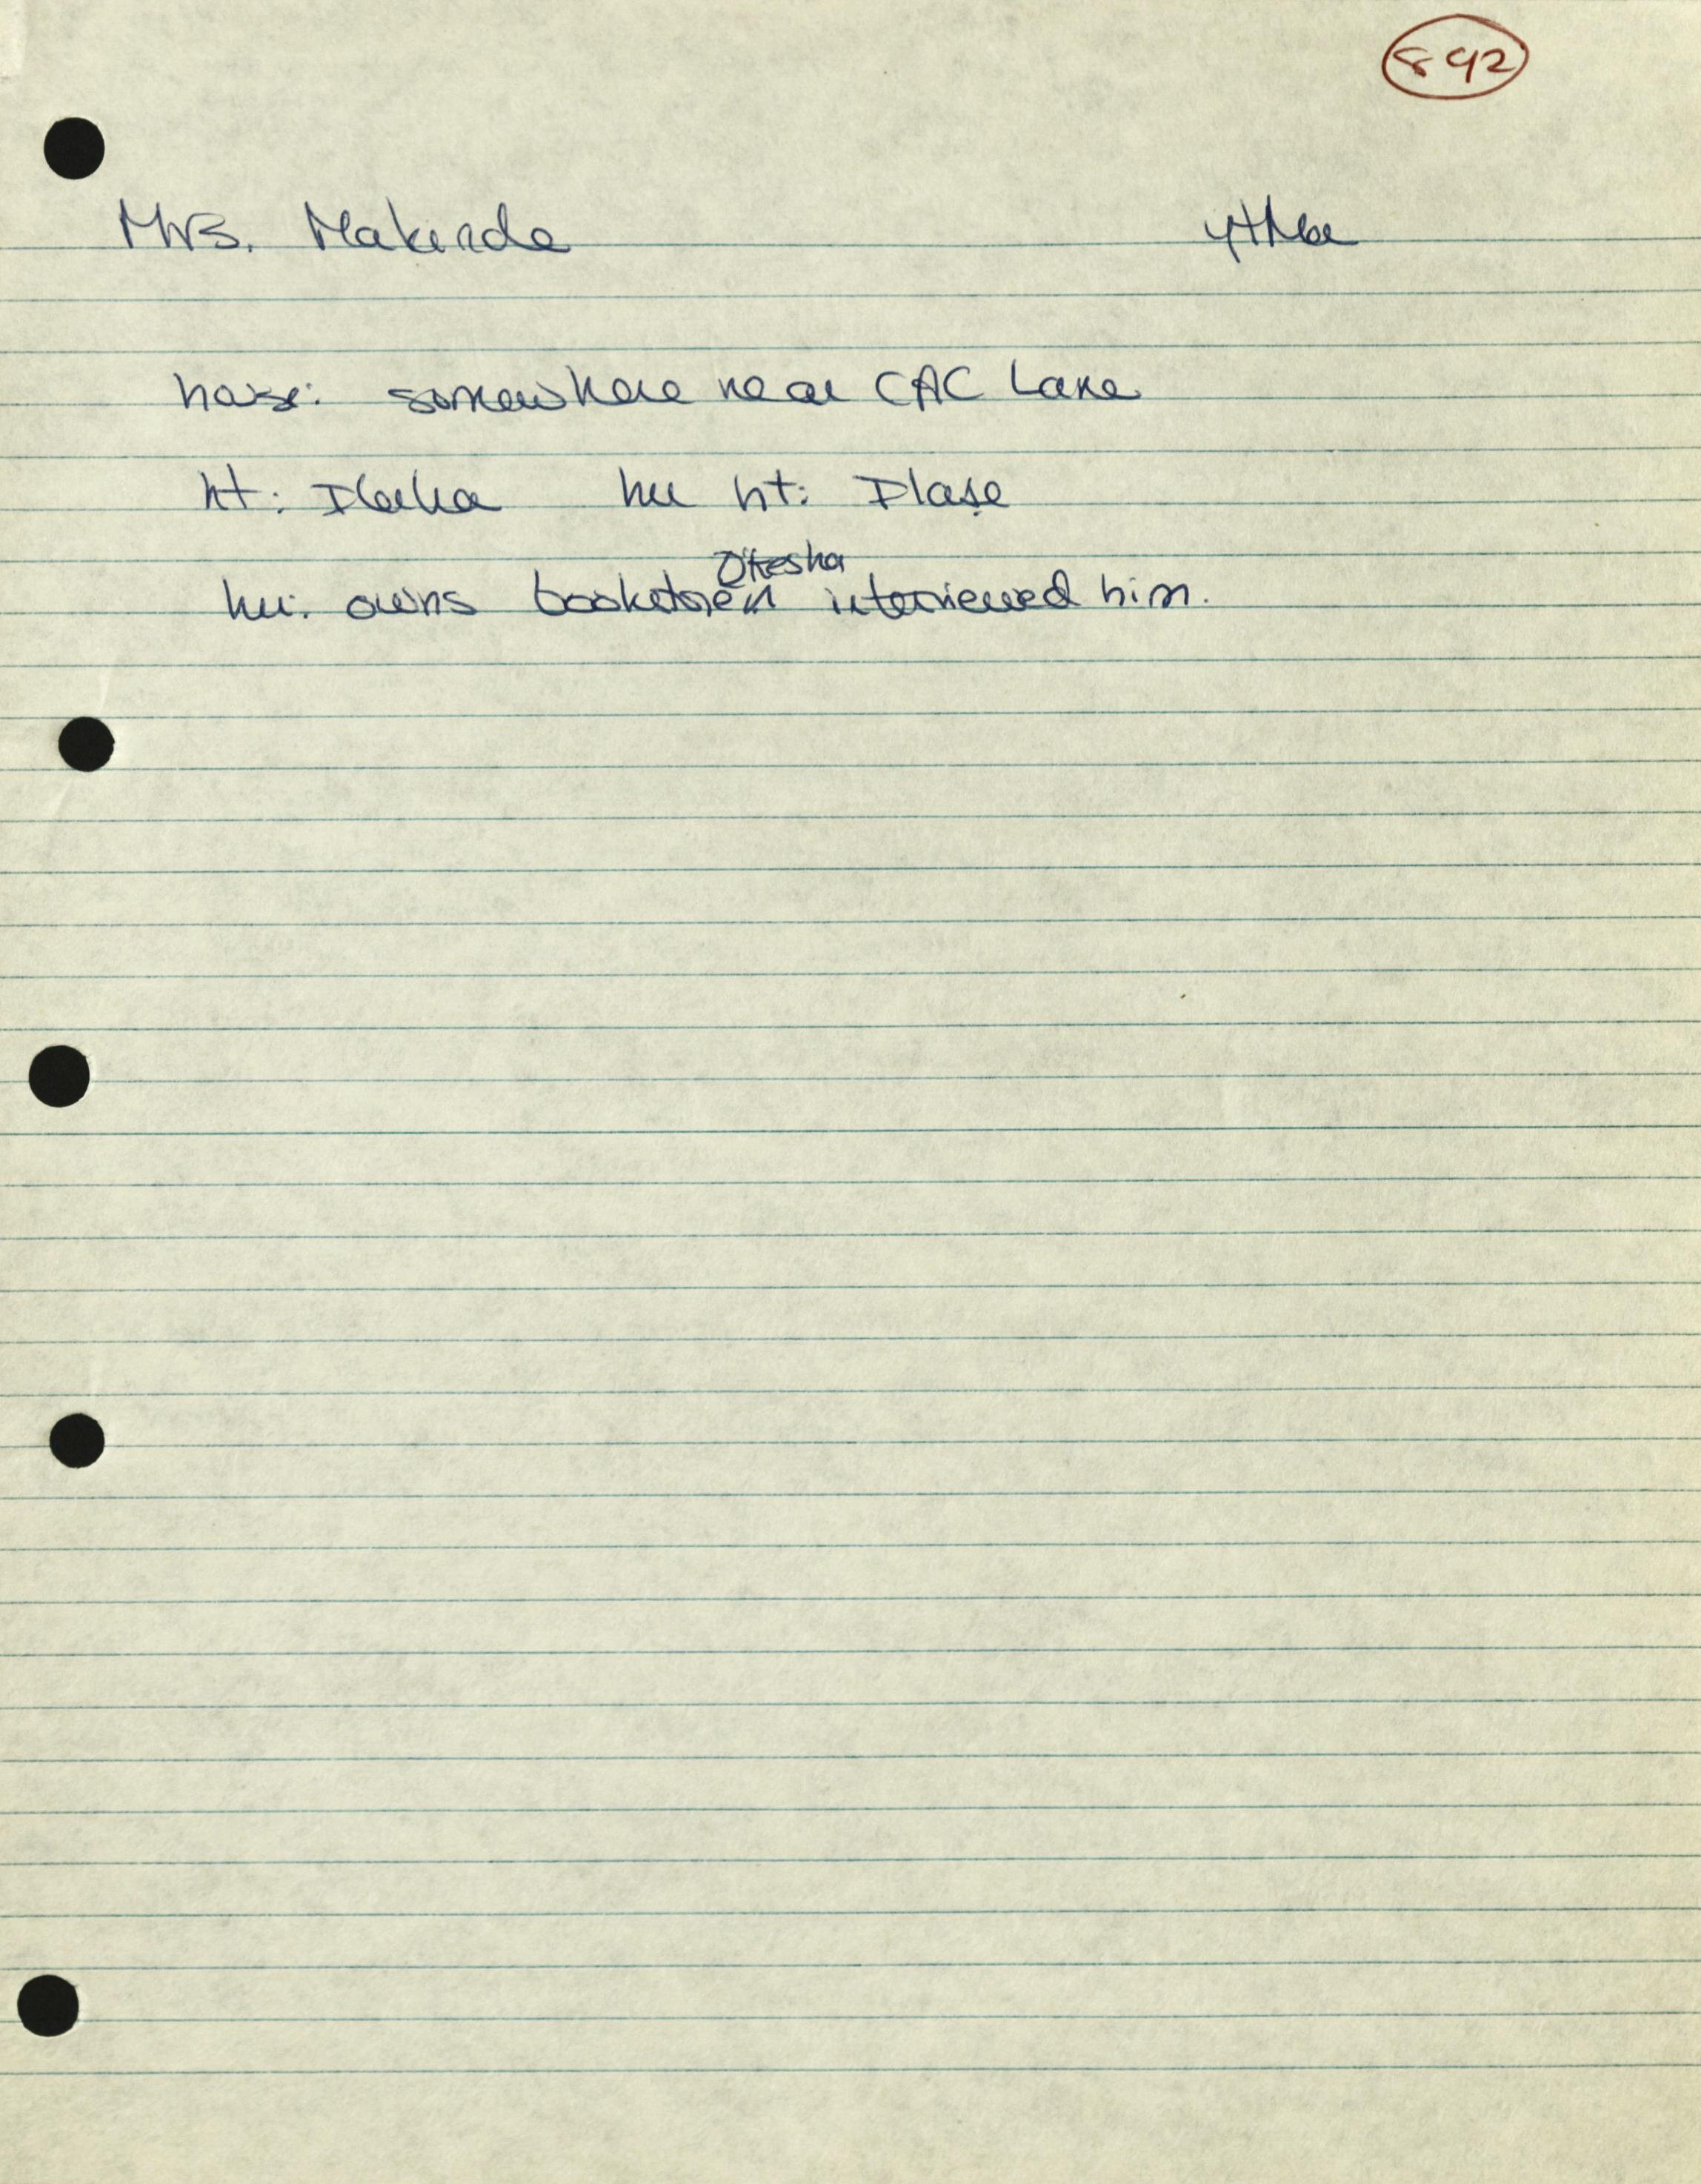 892
Mrs. Makinde
house: somewhere near CAC Lane
ht: hu ht: Ilaṣe
Otesha
hu: owns bookstore interviewed him.